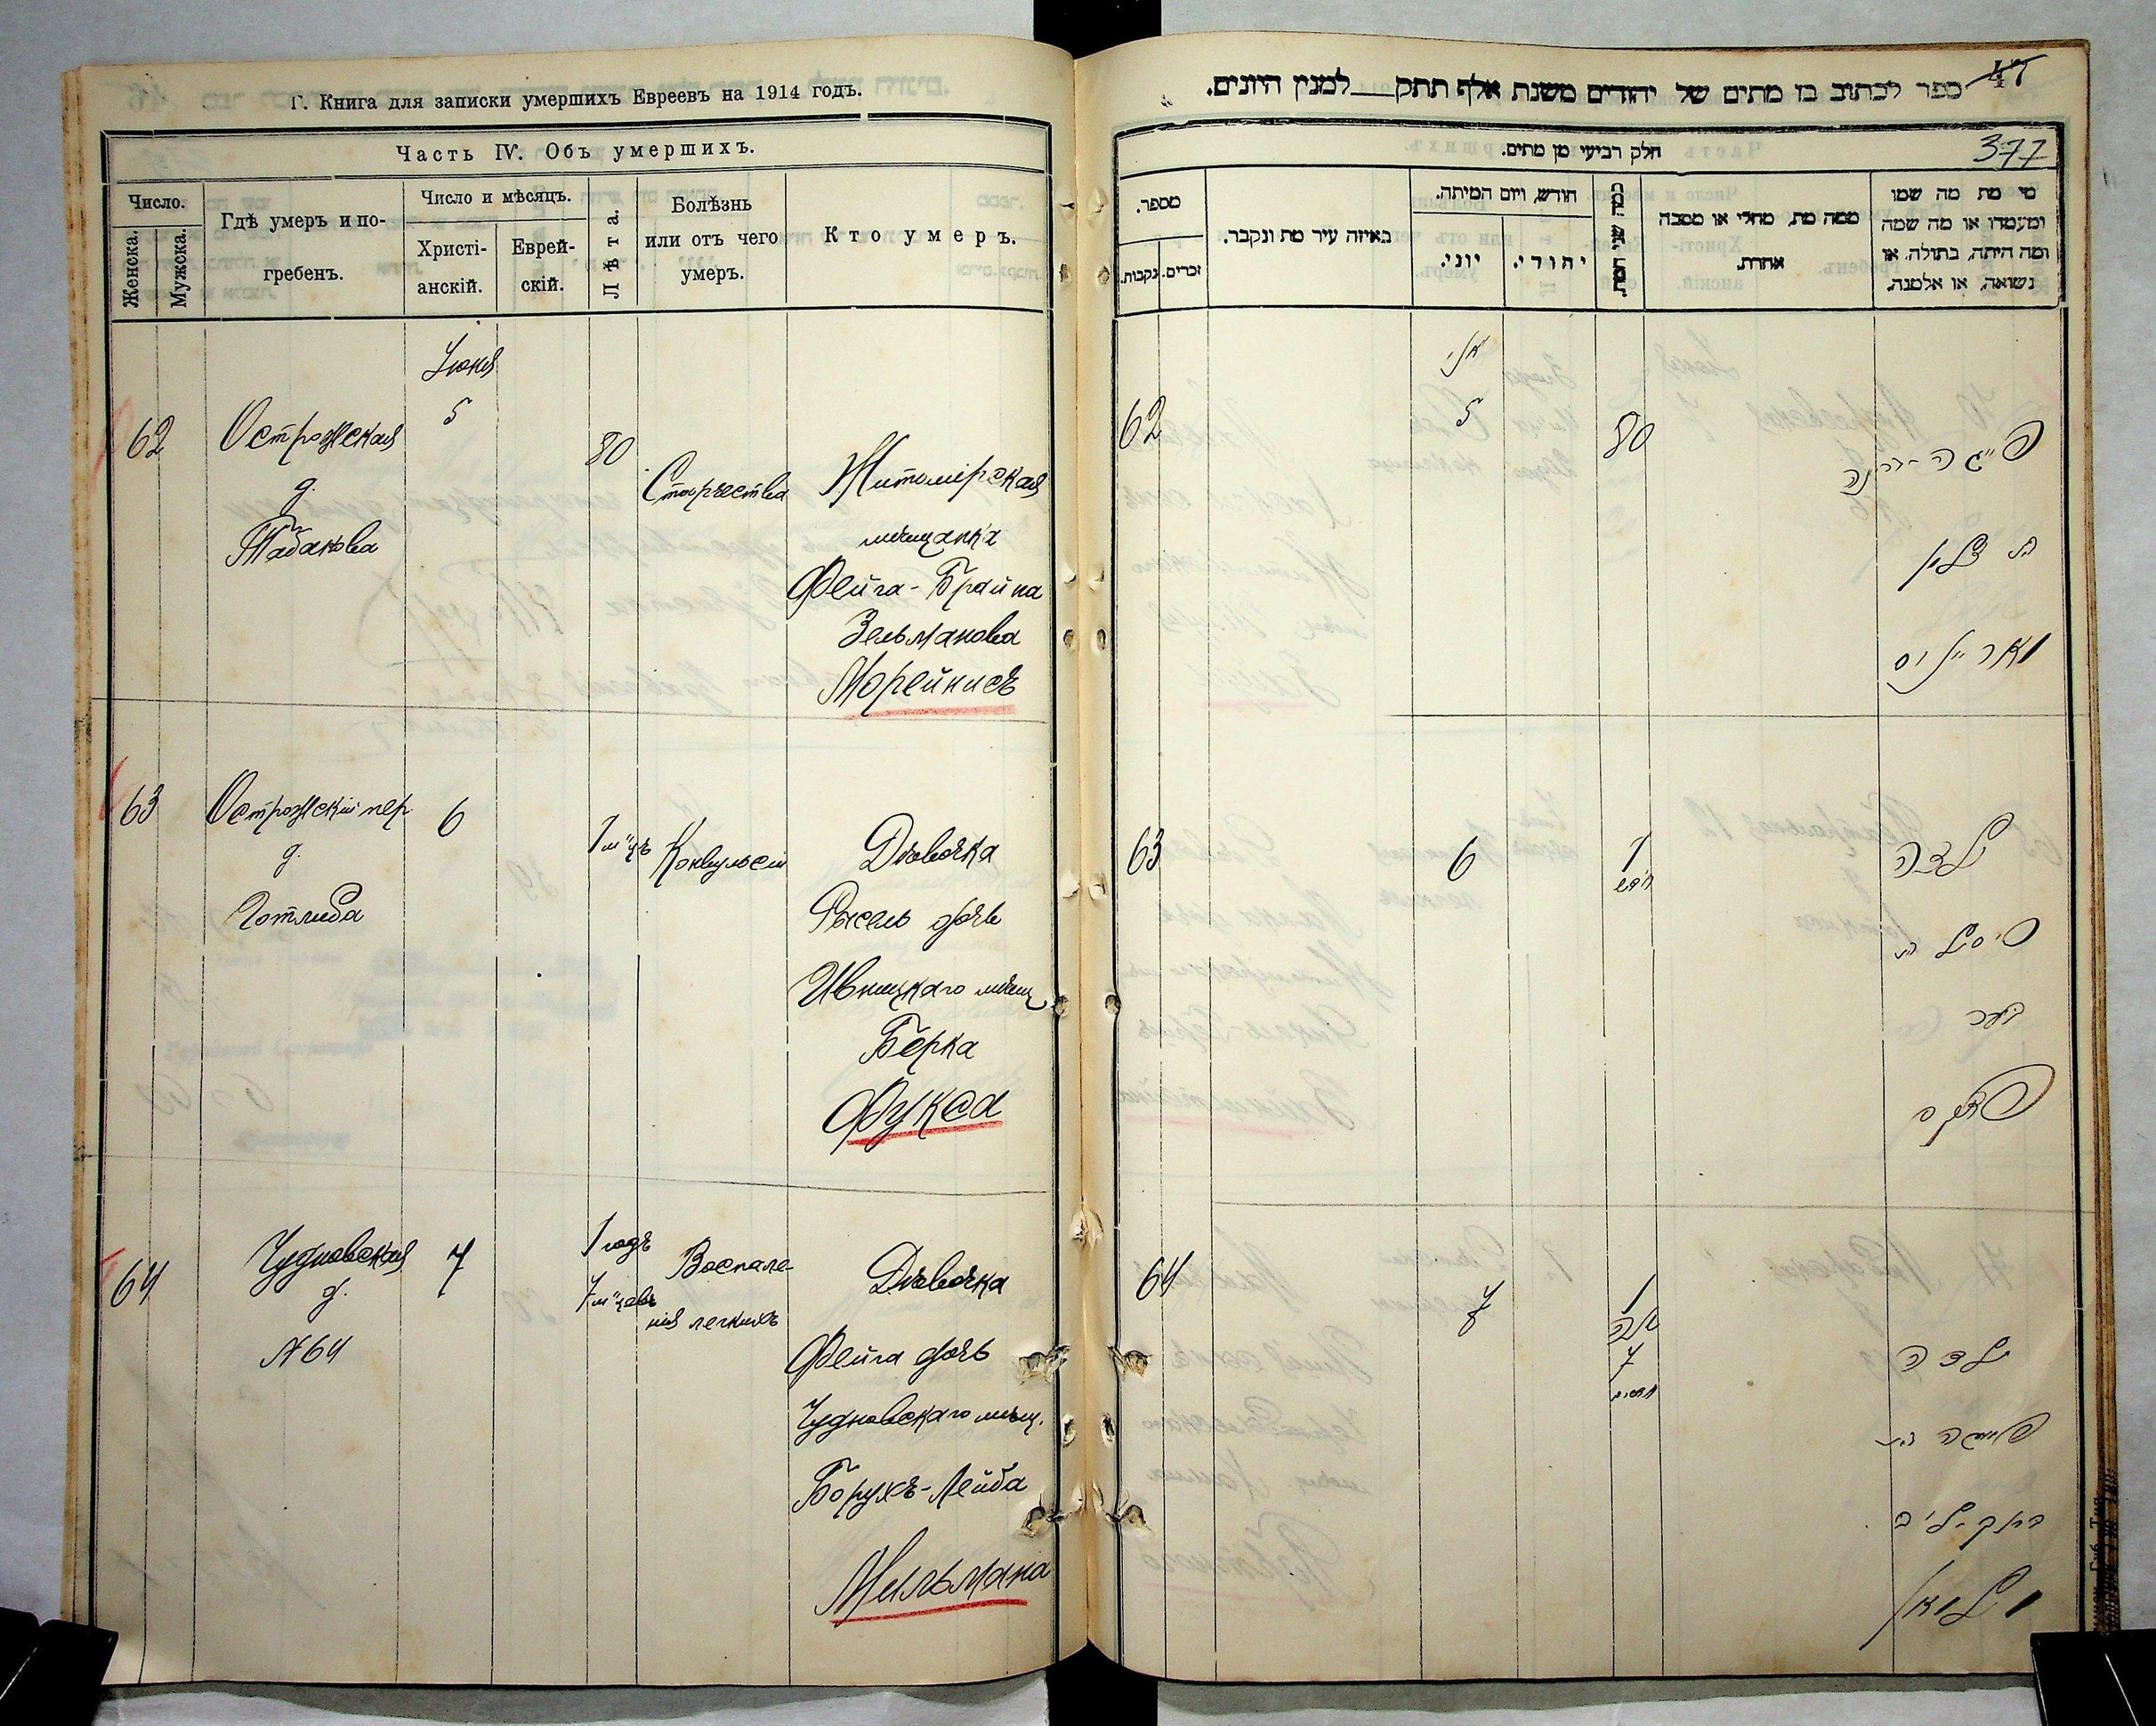 Г. Книга для записки умершихъ Евреевъ на 1914 годъ.
Часть IV. Объ умершихъ.
Число.
Женска.
Мужска.
Гдѣ умеръ и по-
гребенъ.
Число и мѣсяцъ.
Христі-
анскій.
Еврей-
скій.
Лѣта.
Болѣзнь
или отъ чего
умеръ.
Кто умеръ.
Іюня
62
Острожская
д.
Табакова
5
80
Старчества
Житомірская
мѣщанка
Фейга-Брайна
Зельманова
Морейнисъ
63
Острожскій пер
д.
Готлиба
6
1 м-цъ
Конвульсіи
Дѣвочка
Рысель дочь
Ивницкаго мѣщ
Берка
Фукса
64
Чудновская
д.
№64
7
1 годъ
7 м-цевъ
Воспале-
нія легкихъ
Дѣвочка
Фейга дочь
Чудновскаго мѣщ.
Борухъ-Лейба
Мильмана
ספר לכתוב בו מתים של יהודים משנת אלף תתק למנין היונים.
חלק רביעי מן מתים.
377
מספר.
נקבות.
זכרים.
באיזה עיר מת ונקבר.
חודש, ויום המיתה.
יוני.
יהודי.
ממה מת, מחלי או מסבה
אחרת.
מי מת מה שמו
ומעמדו או מה שמה
ומה היתה, בתולה, או
נשואה, או אלמנה.
62
5
80
פייגה בריינה
63
6
1
חדש
ילדה
בער
פוקס
64
7
1
שנה
7
חדשים
ילדה
פייגה בת
ברוך ליב
מילמאן